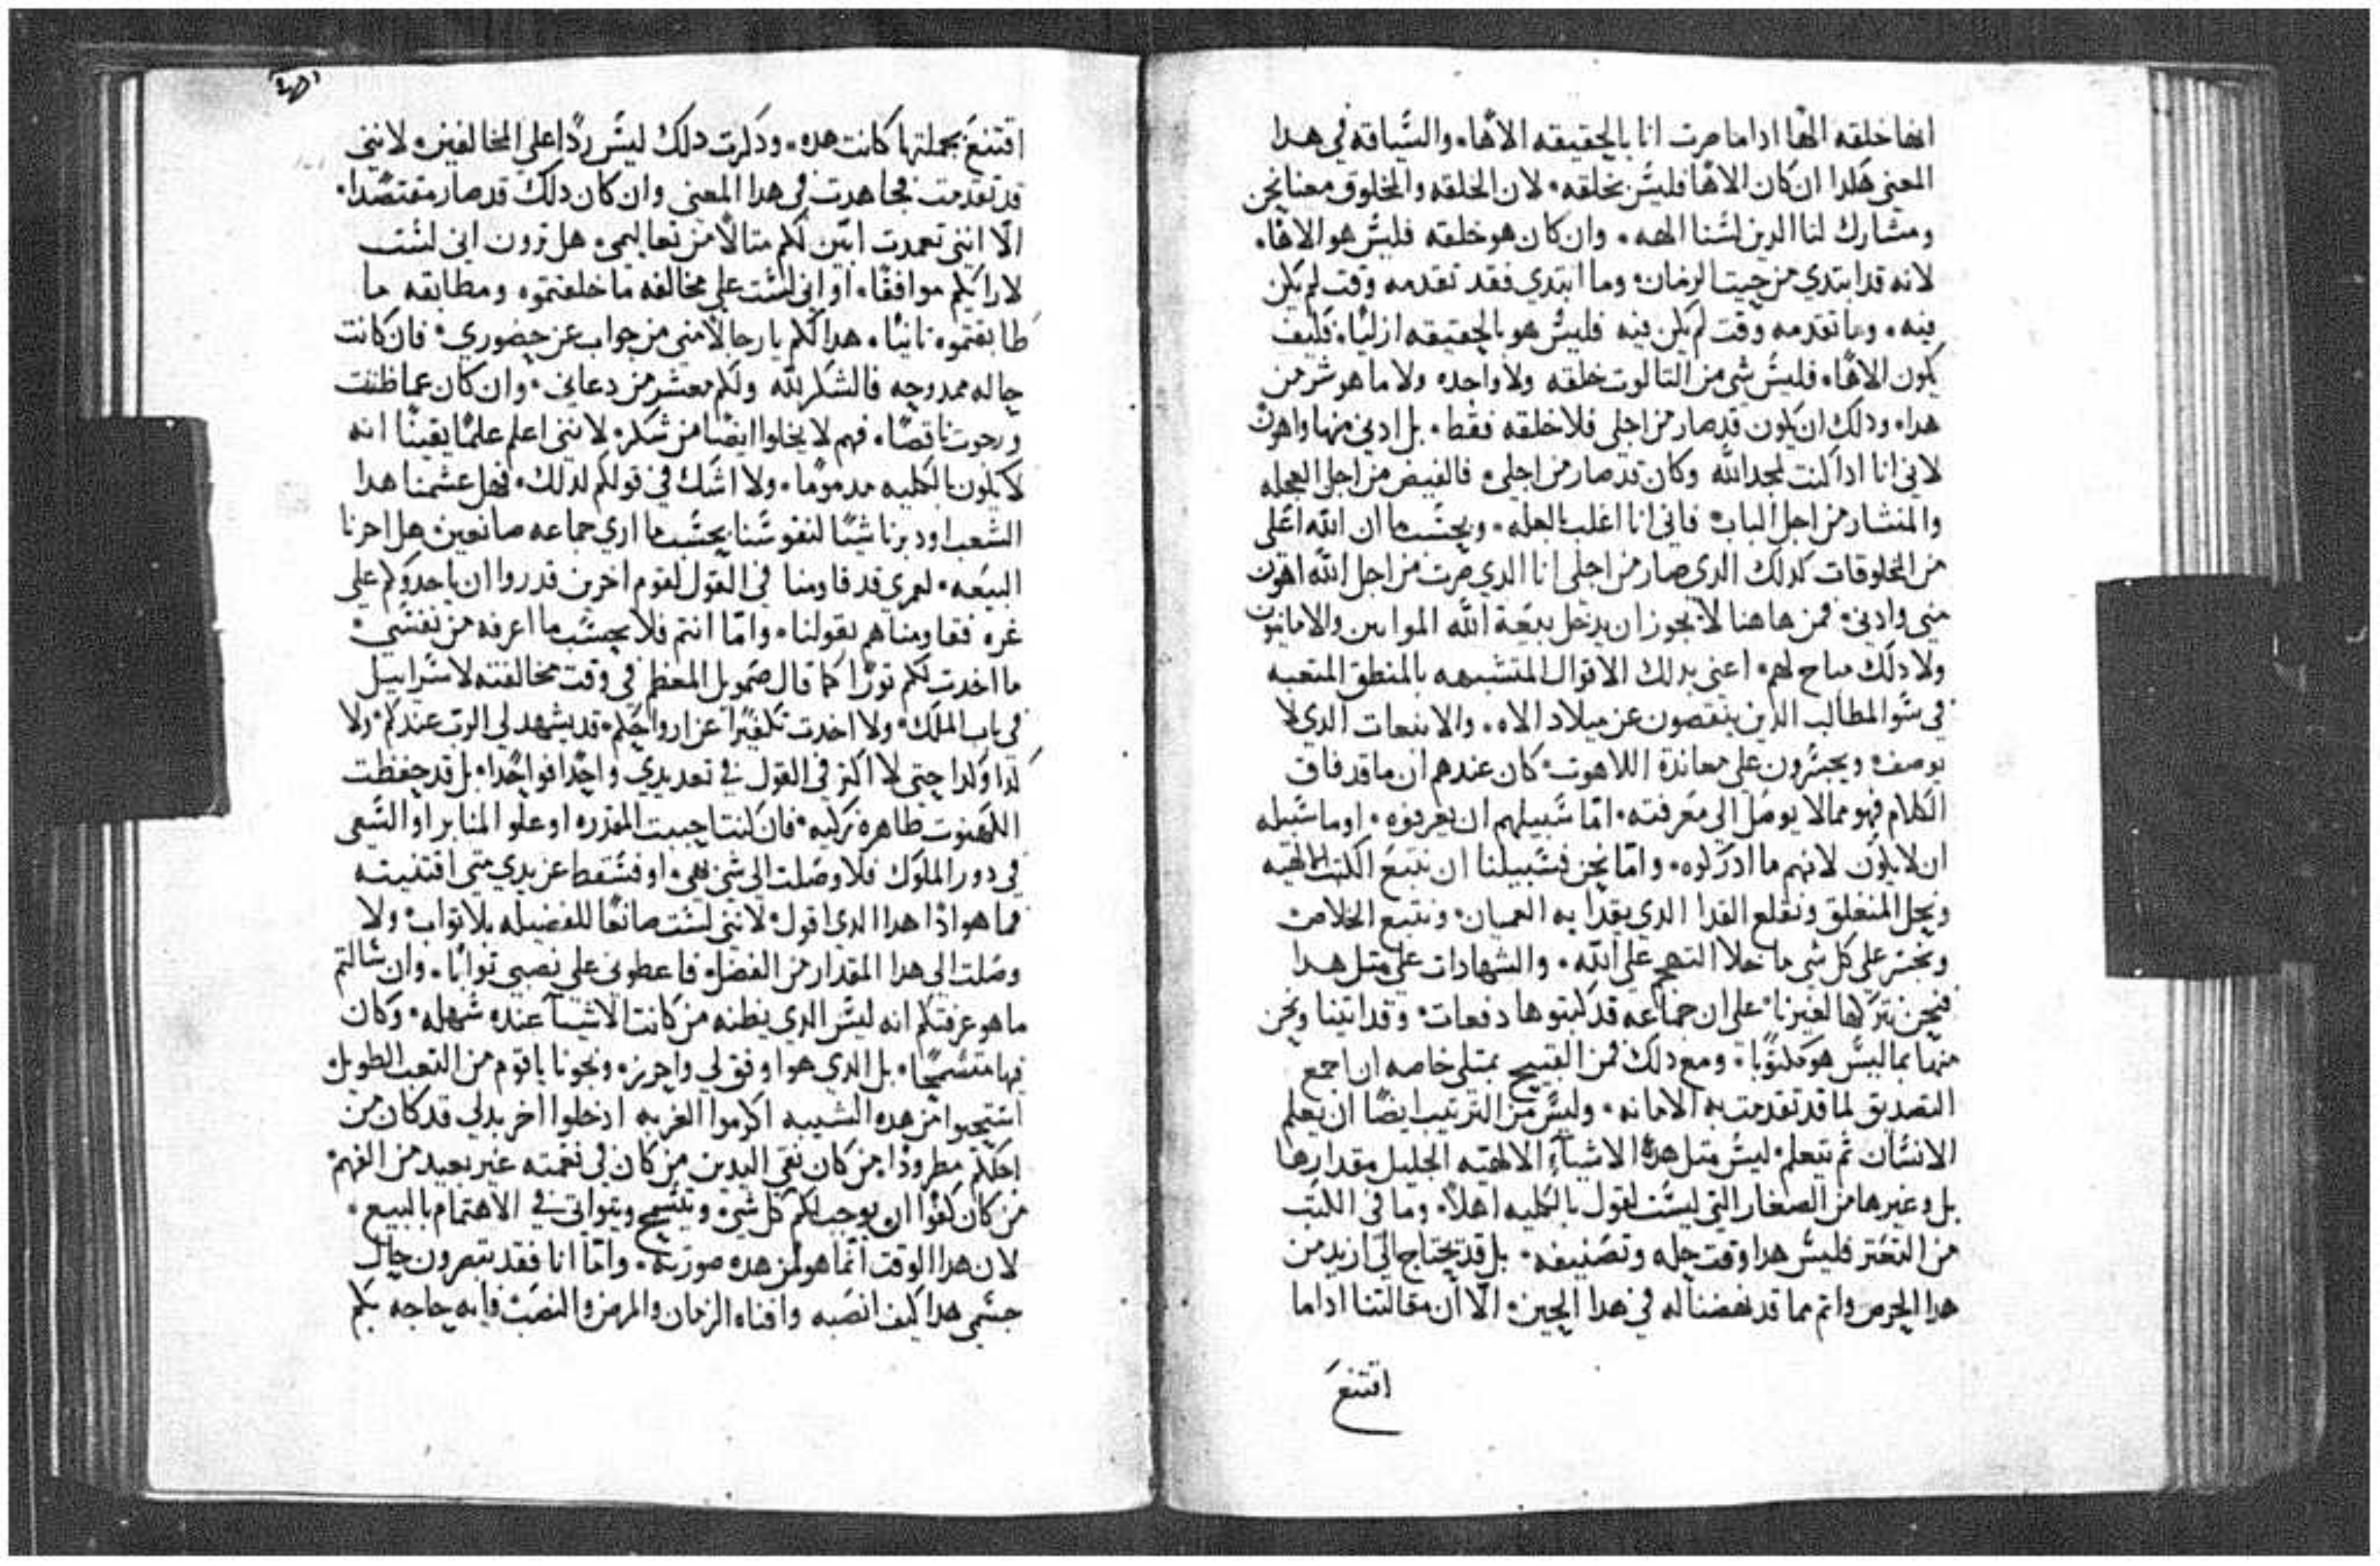 انها خلقه الها اداما صرت انا بالحقيقه الاها، والسياقه في هدا
المعني هكدا ان كان الاها فليس بخلقه، لان الخلقه والمخلوق معنا نحن
ومشارك لنا الدين لسنا الهه، وان كان هو خلقه فليس هو الاها،
لانه قد ابتدي من حيت الزمان، وما ابتدي فقد تقدمه وقت لم يكن
فيه، وما تقدمه وقت لم يكن فيه فليس هو بالحقيقه ازليا، فكيف
يكون الاها، فليس شي من التالوت خلقه ولا واحده ولا ما هو شر من
هدا، ودلك ان يكون قد صار من اجلي فلا خلقه فقط، بل ادني منها واهون
لاني انا ادا كنت لمجد الله وكان قد صار من اجلي، فالفيض من اجل العجله
والمنشار من اجل الباب، فاني انا اغلب بالعله، وبحسب ما ان الله اعلي
من المخلوقات كدلك الدي صار من اجلي انا الدي صرت من اجل الله اهون
مني وادني، فمن هاهنا لا يجوز ان يدخل بيعة الله الموابين والامانيون
ولا دلك مباح لهم، اعني بدلك الاقوال المتشبهه بالمنطق المتعبه
في سو المطالب الدين ينقصون عن ميلاد الاه، والانبعات الدي لا
يوصف، ويجسرون علي معاندة اللاهوت، كان عندهم ان ما قد فاق
الكلام فهو مما لا يوصل الي معرفته، اما سبيلهم ان يعرفوه، او ما سبيله
ان لا يكون لانهم ما ادركوه، واما نحن فسبيلنا ان نتبع الكتب الالهيه
ونحل المنغلق ونقلع القدا الدي يقدا به العميان، ونتبع الخلاص
ونجسر علي كل شي ما خلا التهجم علي الله، والشهادات علي متل هدا
فنحن نتركها لغيرنا، علي ان جماعه قد كتبوها دفعات، وقد اتينا ونحن
منها بما ليس هو مكتوبا، ومع دلك فمن القبيح بمتلي خاصه ان اجمع
التصديق لما قد تقدمت به الامانه، وليس من الترتيب ايضا ان يعلم
الانسان تم يتعلم، ليس متل هده الاشياء الالهيه الجليل مقدارها
بل وغيرها من الصغار التي ليست لقول بالكليه اهلا، وما في الكتب
من التعتر فليس هدا وقت حله وتصنيفه، بل قد يحتاج الي ازيد من
هدا الحرص واتم مما قد نهضنا له في هدا الحين، الا ان مقالتنا اداما
اقتنع
اقتنع بجملتها كانت هده، ودكرت دلك ليس ردا علي المخالفين، لانني
قد تقدمت فجاهدت في هدا المعني وان كان دلك قد صار مقتصدا،
الا انني تعمدت ابين لكم متالا من تعاليمي، هل ترون اني لست
لارايكم موافقا، او اني لست علي مخالفه ما خلفتموه ومطابقه ما
طابقتموه تانيا، هدا لكم يا رجالا مني من جواب عن حضوري، فان كانت
حاله ممدوحه فالشكر لله ولكم معشر من دعاني، وان كان عما ظننت
ورجوت ناقصا، فهم لا يخلوا ايضا من شكر، لانني اعلم علما يقينا انه
لا يكون بالكليه مدموما، ولا اشك في قولكم لدلك، فهل عشمنا هدا
الشعب او دبرنا شيا لنفوسنا بحسب ما اري جماعه صانعين، هل احزنا
البيعه، لعمري قد قاومنا في القول لقوم اخرين قدروا ان ياخدوكم علي
غره فقاومناهم بقولنا، واما انتم فلا بحسب ما اعرفه من نفسي،
ما اخدت لكم تورا كما قال صمويل المعظم في وقت مخالفته لاسراييل
في باب الملك، ولا اخدت تكفيرا عن ارواحكم، قد يشهد لي الرب عندكم، ولا
كدا وكدا حتي لا اكتر في القول في تعديدي واحدا فواحدا، بل قد حفظت
الكهنوت طاهره زكيه، فان كنت احببت المقدره او علو المنابر او السعي
في دور الملوك فلا وصلت الي شي بهي، او فسقط عن يدي متي اقتنيته
فما هو ادا هدا الدي اقول، لانني لست صانعا للفضيله بلا تواب، ولا
وصلت الي هدا المقدار من الفضل، فاعطوني علي نصبي توابا، وان سالتم
ما هو عرفتكم انه ليس الدي يظنه من كانت الاشيا عنده سهله، وكان
فيها متسمحا، بل الدي هو اوفق لي واحرز، ونجونا ياقوم من التعب الطويل
استحيوا من هده الشيبه اكرموا الغربه ادخلوا اخر بدلي قد كان من
اجلكم مطرودا، من كان نقي اليدين من كان في نغمته غير بعيد من الفهم،
من كان كفوا ان يوجب لكم كل شي، ويتسمح ويتواني في الاهتمام بالبيع،
لان هدا الوقت انما هو لمن هده صورته، واما انا فقد تبصرون حال
جسمي هدا كيف انصبه وافناه الزمان والمرض والنصب، فايه حاجه بكم